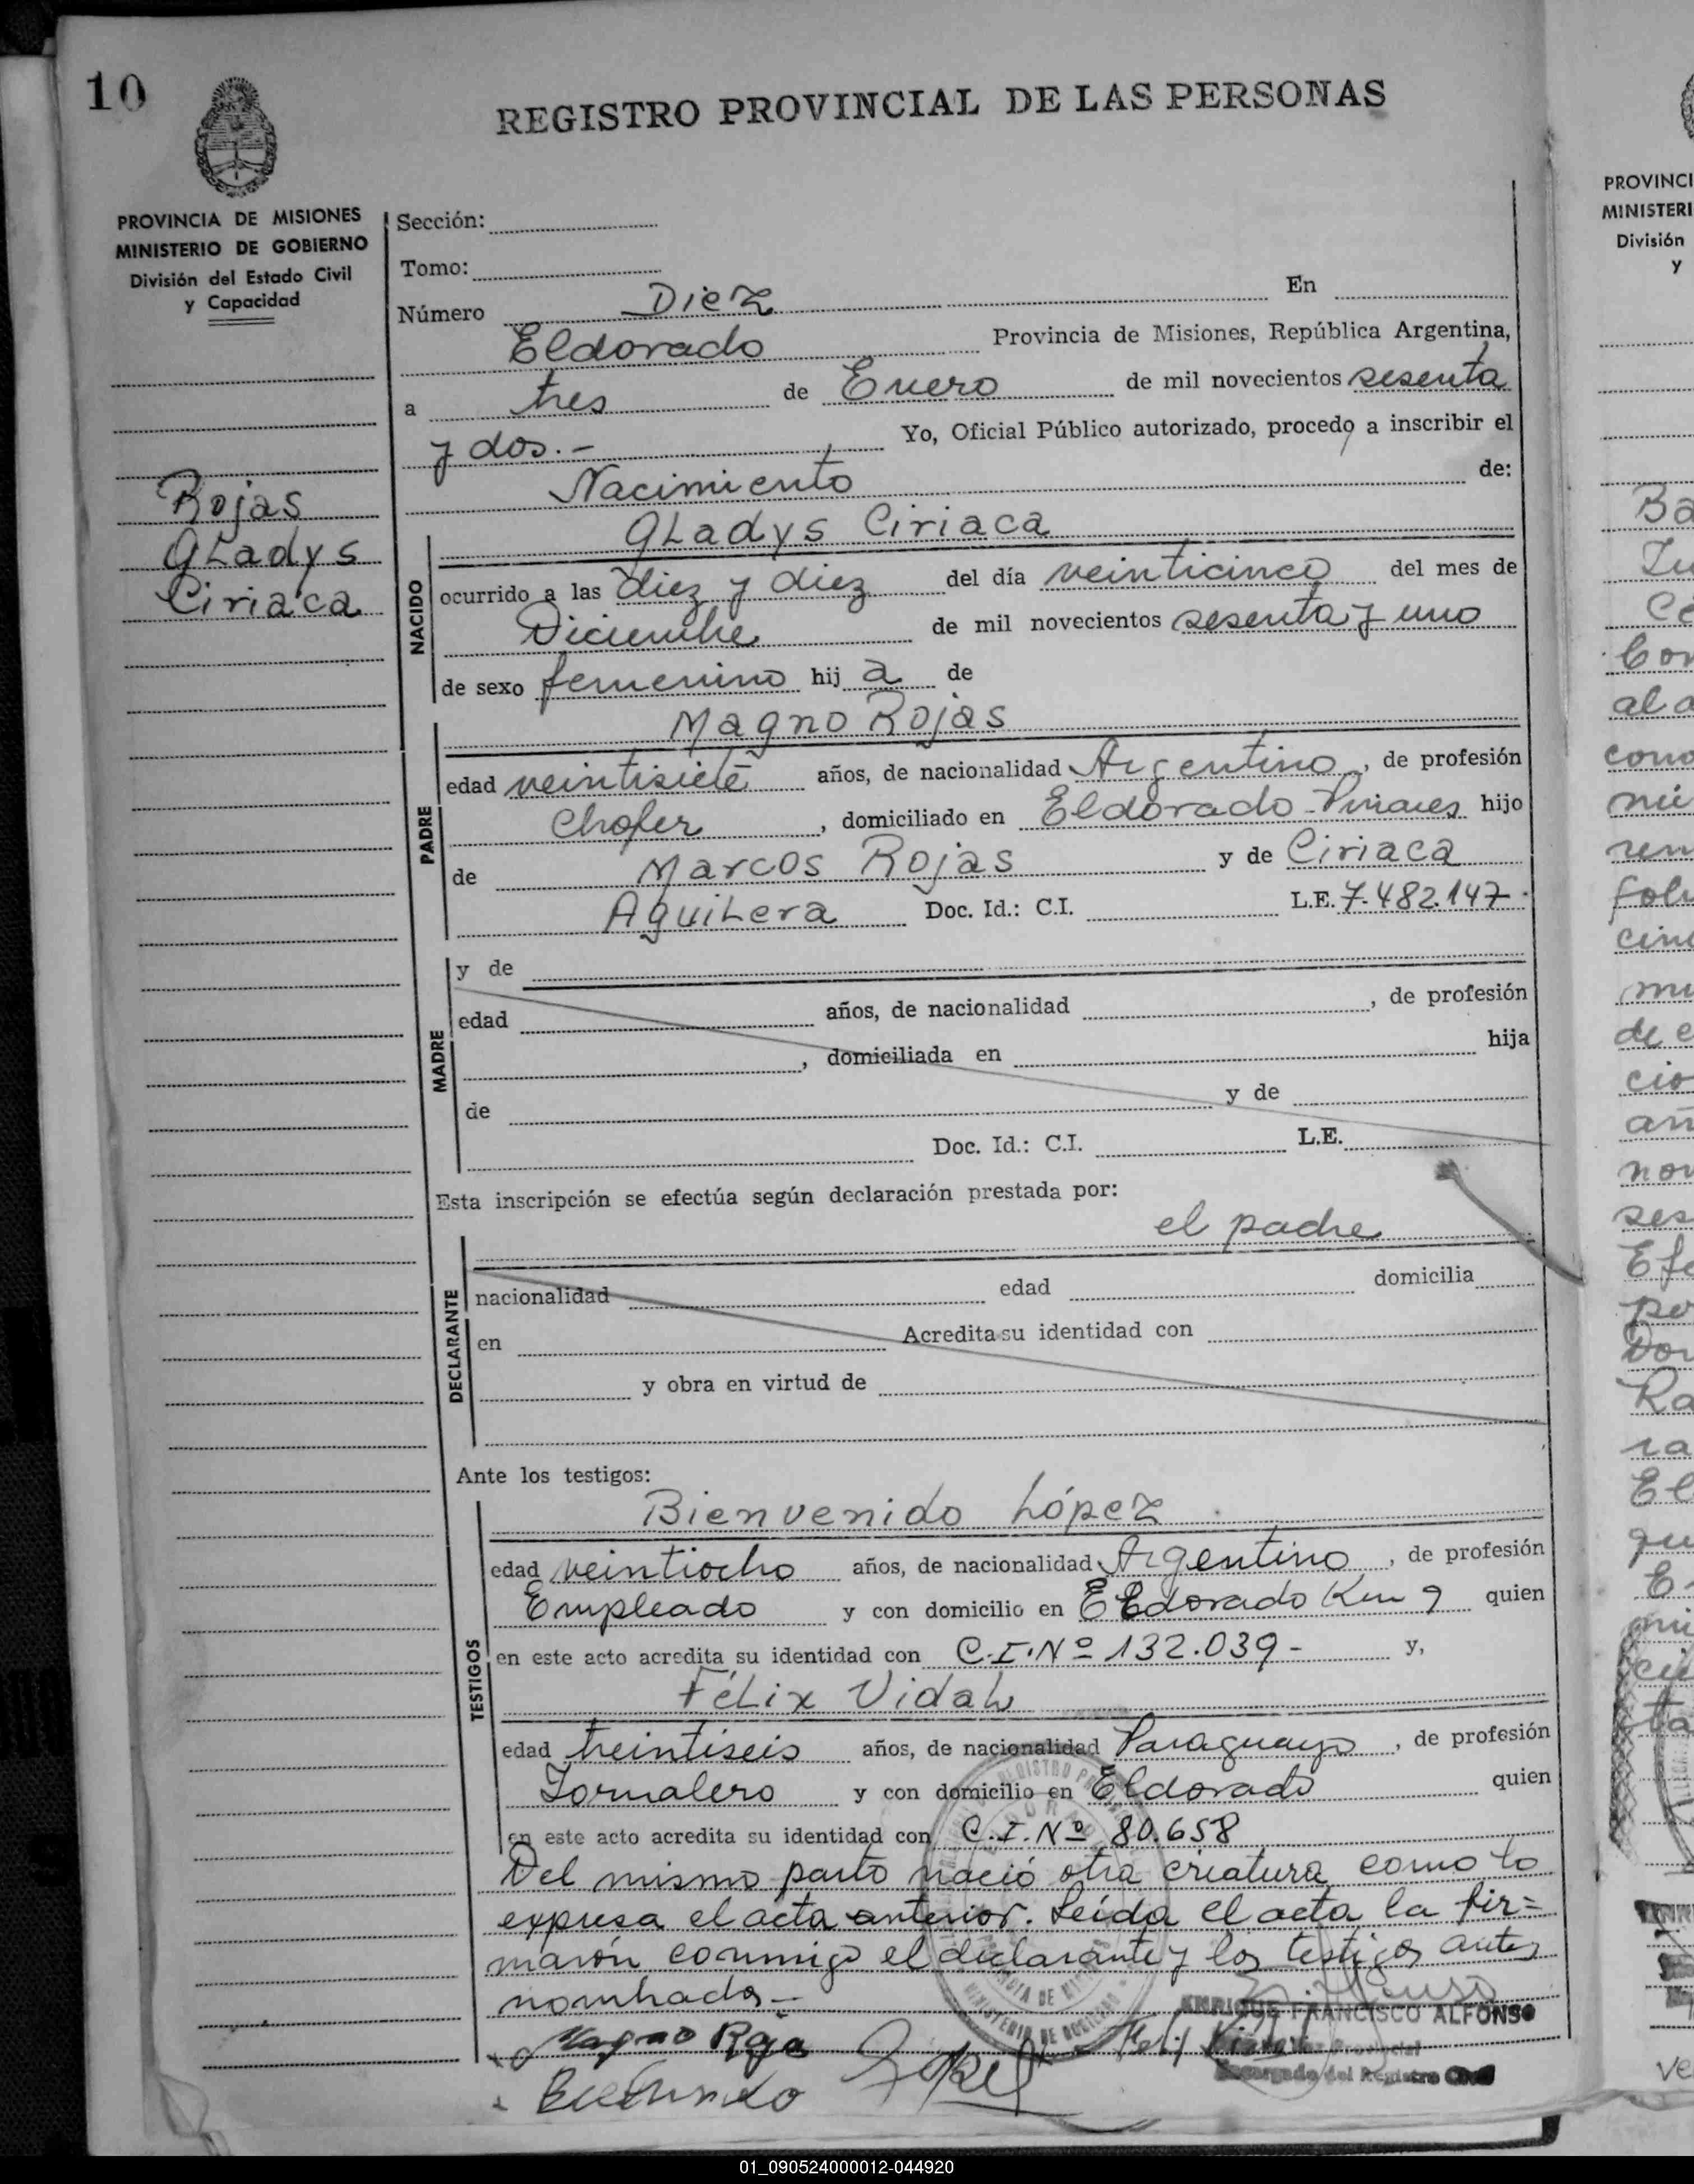 10
REGISTRO PROVINCIAL DE LAS PERSONAS
PROVINCIA DE MISIONES
MINISTERIO DE GOBIERNO
División del Estado Civil
y Capacidad
Rojas
GLadys
Ciriaca
Sección:
Tomo:
Número Diez En
Eldorado Provincia de Misiones, República Argentina,
a tres de Enero de mil novecientos sesenta
y dos.- Yo, Oficial Público autorizado, procedo a inscribir el
Nacimiento de:
GLadys Ciriaca
NACIDO
ocurrido a las diez y diez del día veinticinco del mes de
Diciembre de mil novecientos sesenta y uno
de sexo femenino hij a de
Magno Rojas
PADRE
edad veintisiete años, de nacionalidad Argentino, de profesión
Chofer, domiciliado en Eldorado-Pinares hijo
de Marcos Rojas y de Ciriaca
AguiLera Doc. Id.: C.I. L.E. 7.482.147.
MADRE
y de
edad años, de nacionalidad , de profesión
, domiciliada en hija
de y de
Doc. Id.: C.I. L.E.
Esta inscripción se efectúa según declaración prestada por:
el padre
DECLARANTE
nacionalidad edad domicilia
en Acredita su identidad con
y obra en virtud de
Ante los testigos:
Bienvenido López
TESTIGOS
edad veintiocho años, de nacionalidad Argentino, de profesión
Empleado y con domicilio en Eldorado Km 9 quien
en este acto acredita su identidad con C.I.Nº 132.039- y,
FéLix VidaL
edad treintiseis años, de nacionalidad Paraguayo, de profesión
Jornalero y con domicilio en Eldorado quien
en este acto acredita su identidad con C.I.Nº 80.658
Del mismo parto nació otra criatura como lo
expresa el acta anterior. Leída el acta la fir=
maron conmigo el declarante y los testigos antes
nombrados.-
ENRIQUE FRANCISCO ALFONSO
Encargado del Registro Civil
Magno Roja
PROVINCI
MINISTERI
División
y
01_090524000012-044920